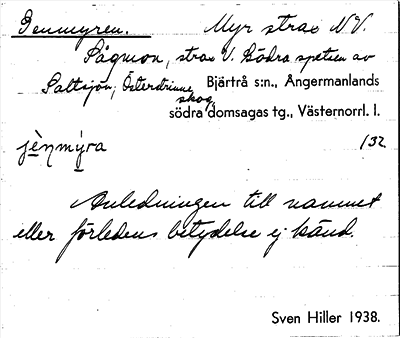 Jenmyren. Myr strax N.V.
Sågmon, strax V. Södra spetsen av
Saltsjön, Österstrinne
skog, Bjärtrå s:n., Ångermanlands
södra domsagas tg., Västernorrl. l.
jènmýra 132
Anledningen till namnet
eller förledens betydelse ej känd.
Sven Hiller 1938.